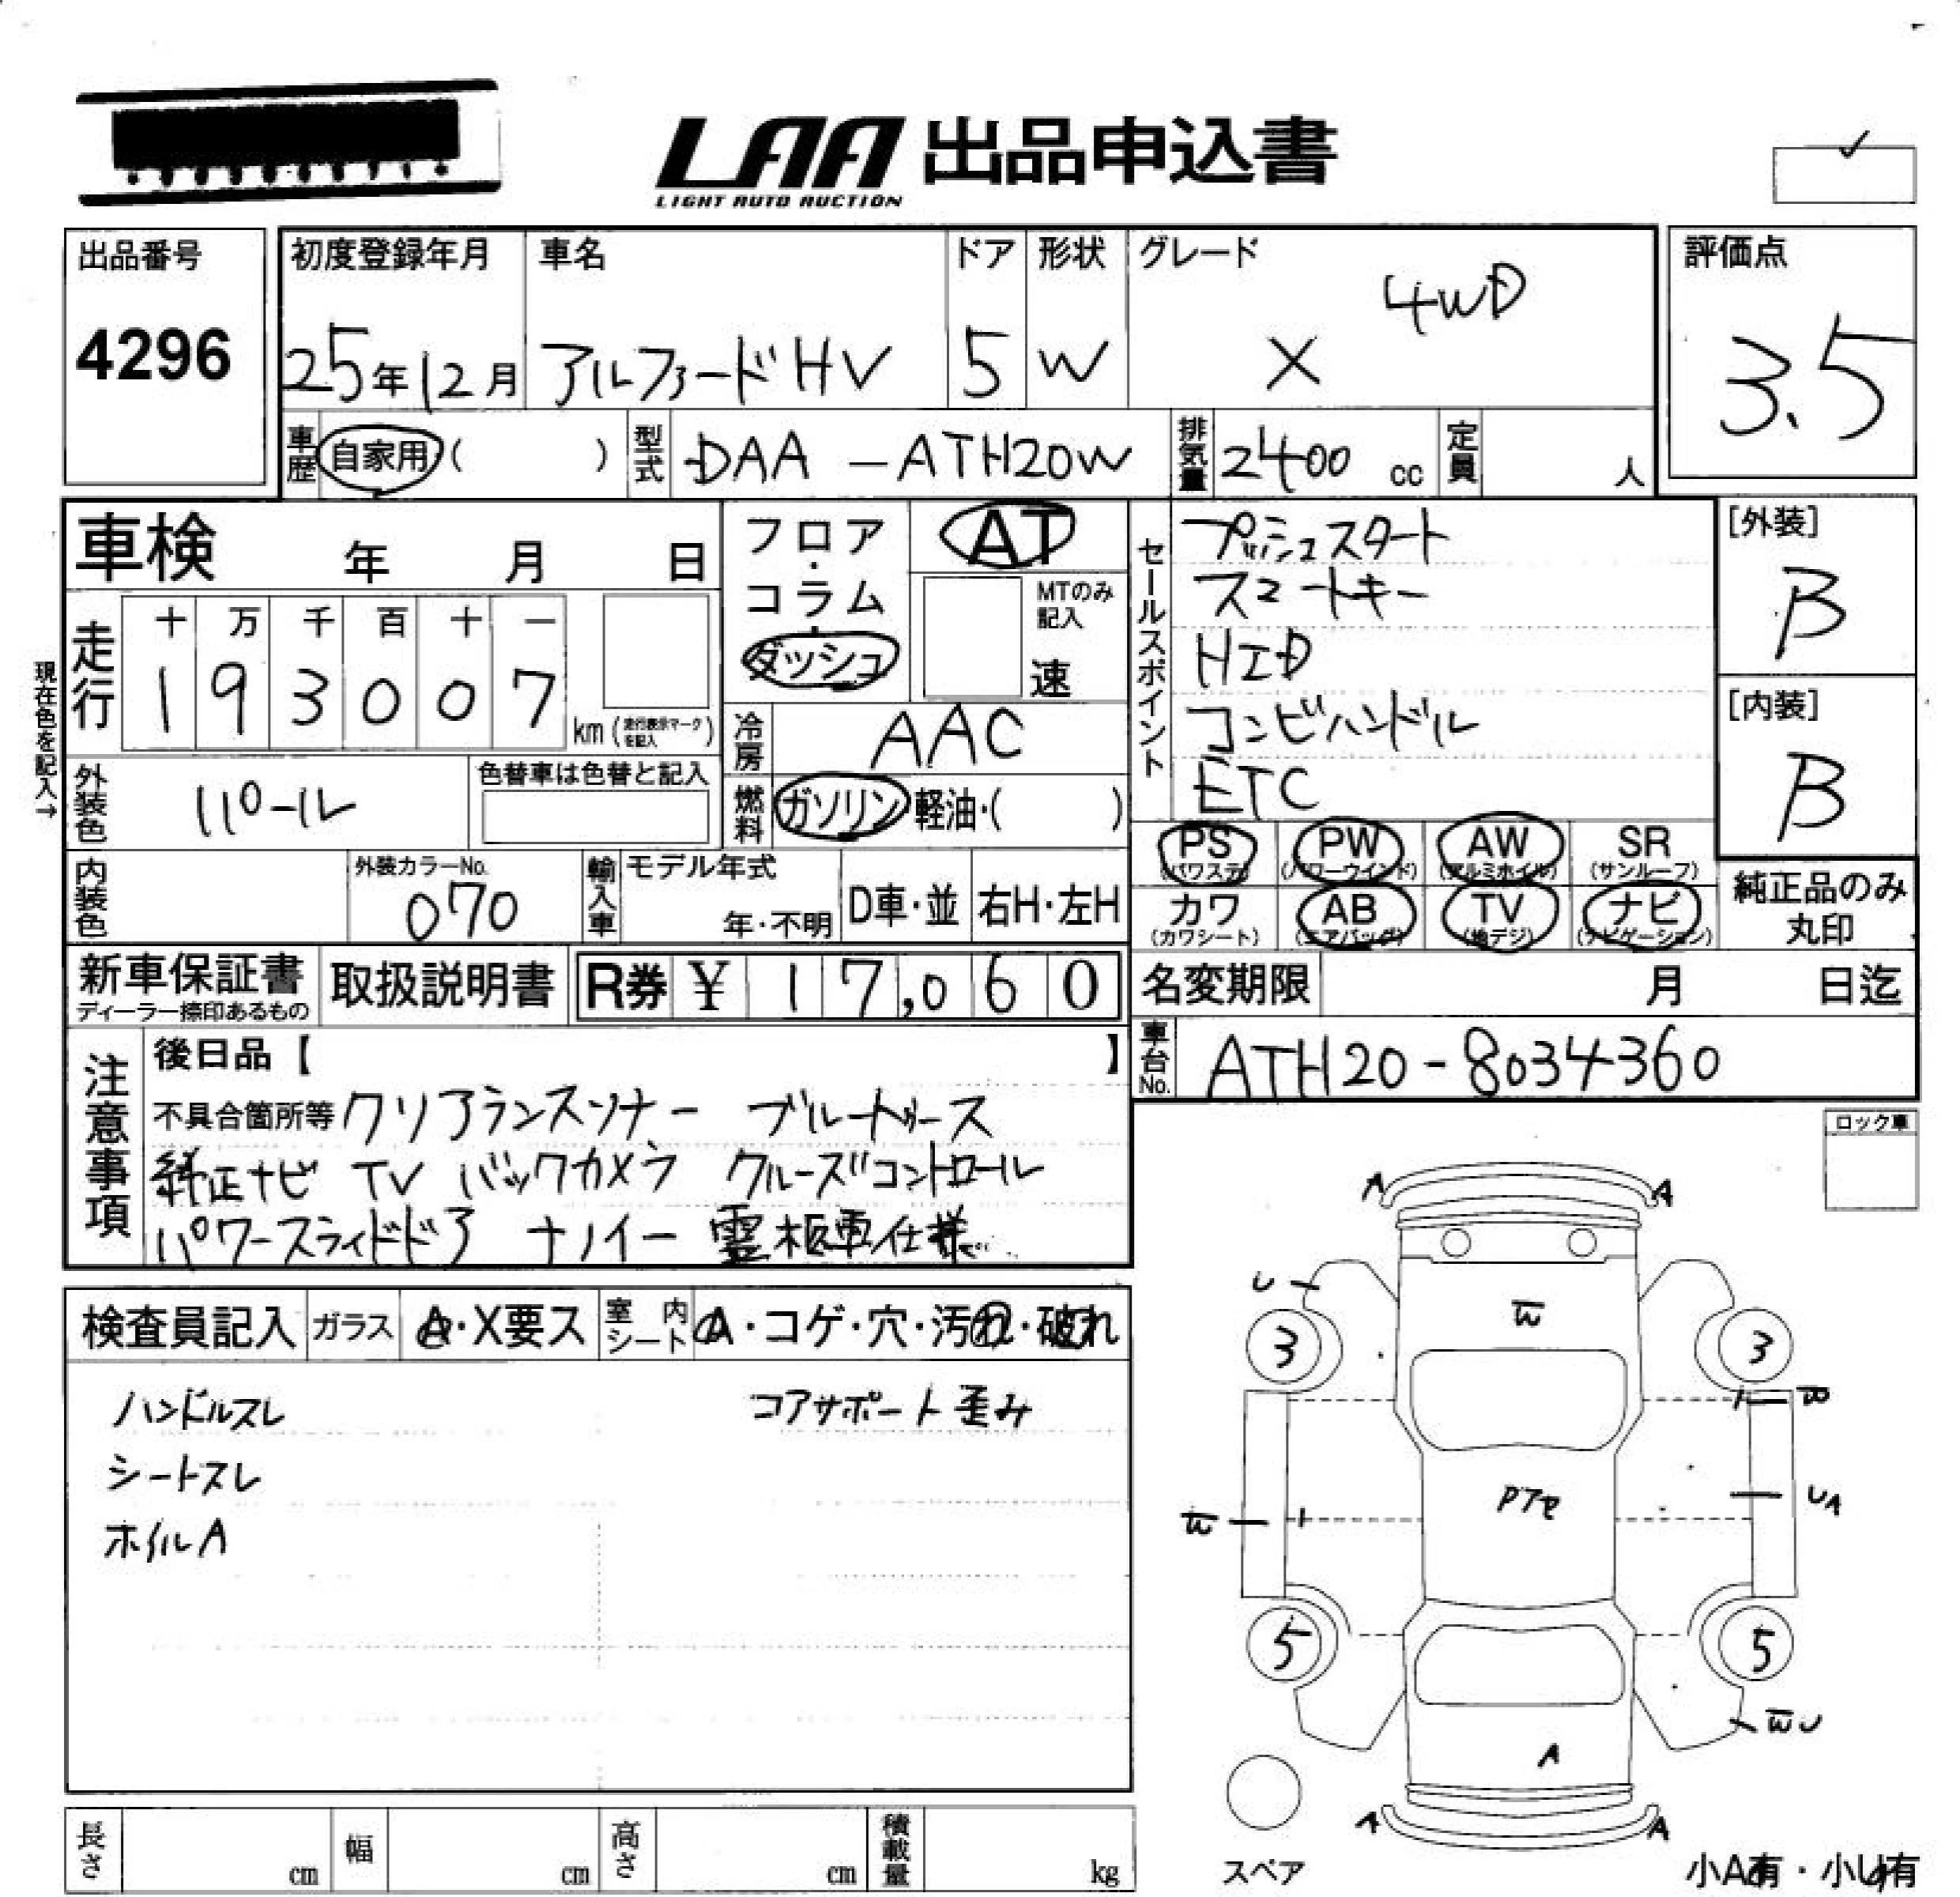 LAA 出品申込書
LIGHT AUTO AUCTION
出品番号
4296
初度登録年月 車名 ドア 形状 グレード
25年12月 アルファードHV 5 W X 4WD
評価点
3.5
車歴 自家用( ) 型式 DAA-ATH20W 排気量 2400 cc 定員 人
車検 年 月 日
フロア・コラム・ダッシュ
AT
MTのみ記入
速
現在色を記入→
走行
十 万 千 百 十 一
1 9 3 0 0 7
km (走行表示マークを記入)
冷房 AAC
燃料 ガソリン 軽油・( )
外装色 パール
色替車は色替と記入
内装色
外装カラーNo.
070
輸入車 モデル年式
年・不明 D車・並 右H・左H
セールスポイント
プッシュスタート
スマートキー
HID
コンビハンドル
ETC
[外装]
B
[内装]
B
PS (パワステ) PW (パワーウインド) AW (アルミホイル) SR (サンルーフ)
カワ (カワシート) AB (エアバッグ) TV (地デジ) ナビ (ナビゲーション)
純正品のみ
丸印
新車保証書
ディーラー捺印あるもの
取扱説明書 R券 ¥ 17,060
名変期限 月 日迄
車台No. ATH20-8034360
注意事項
後日品【 】
不具合箇所等 クリアランスソナー ブルートゥース
純正ナビ TV バックカメラ クルーズコントロール
パワースライドドア ナノイー 霊柩車仕様
ロック車
検査員記入 ガラス A・X要ス 室内シート A・コゲ・穴・汚れ・破れ
ハンドルスレ コアサポート歪み
シートスレ
ホイルA
A A
U W
3 3
B
Pアセ
W UA
5 5
WU
A
A A
スペア
小A有・小U有
長さ cm 幅 cm 高さ cm 積載量 kg